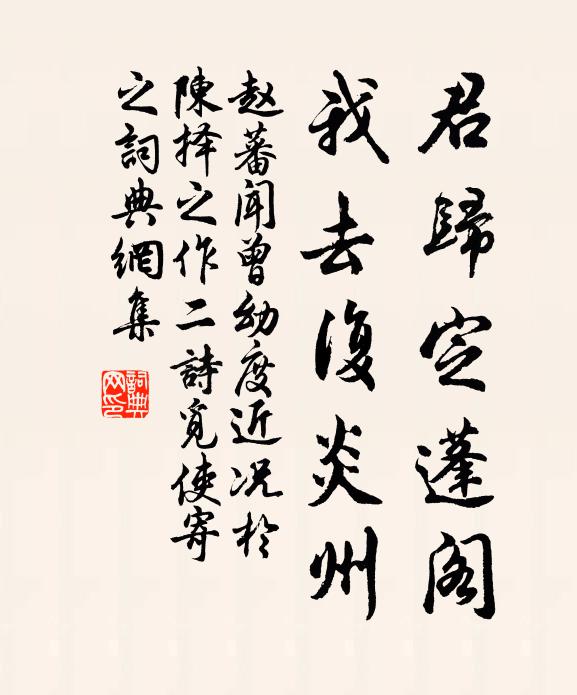 君歸定蓬阁
我去復炎州
赵蕃闻曾幼度近况於
陳择之作二詩覓使寄
之詞典網集
詞典网印